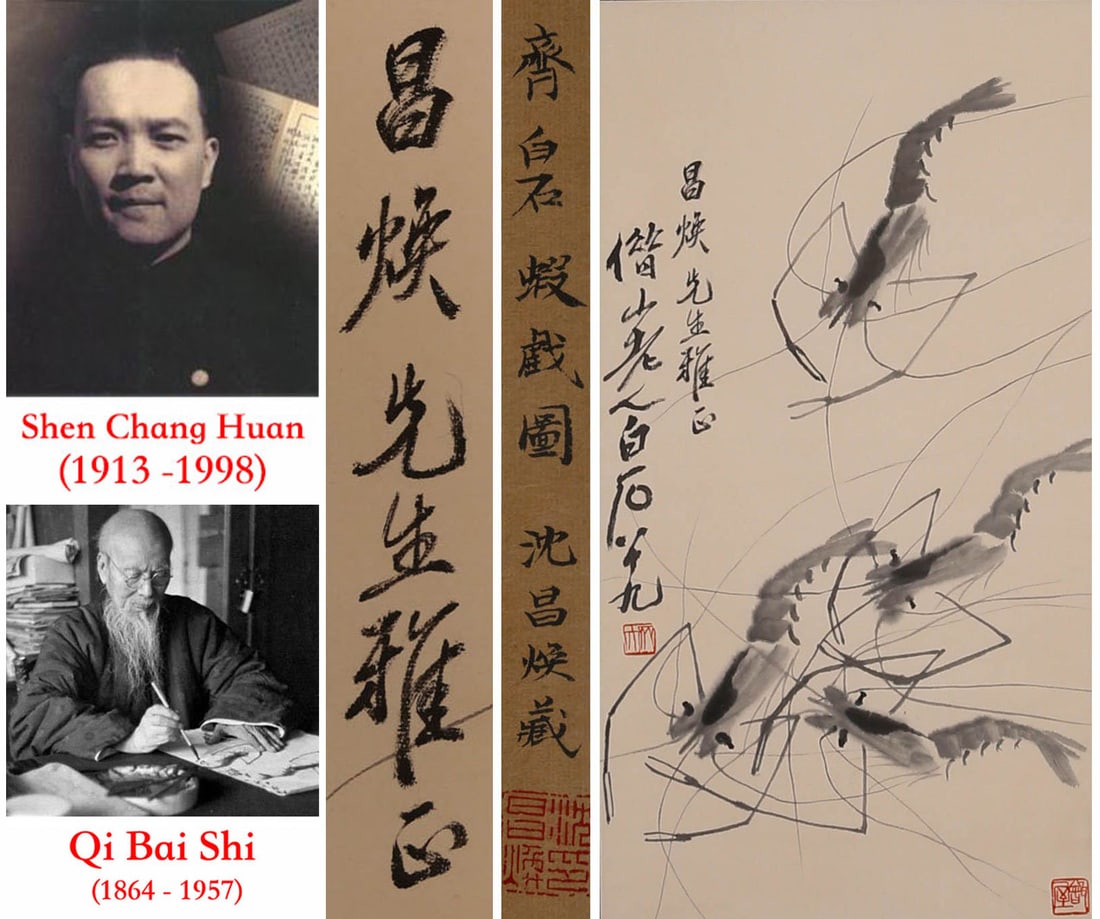 Shen Chang Huan
(1913 -1998)
Qi Bai Shi
(1864 - 1957)
昌煥先生雅正
齊白石蝦戲圖 沈昌煥藏
昌煥先生雅正
借山老人白石八十九